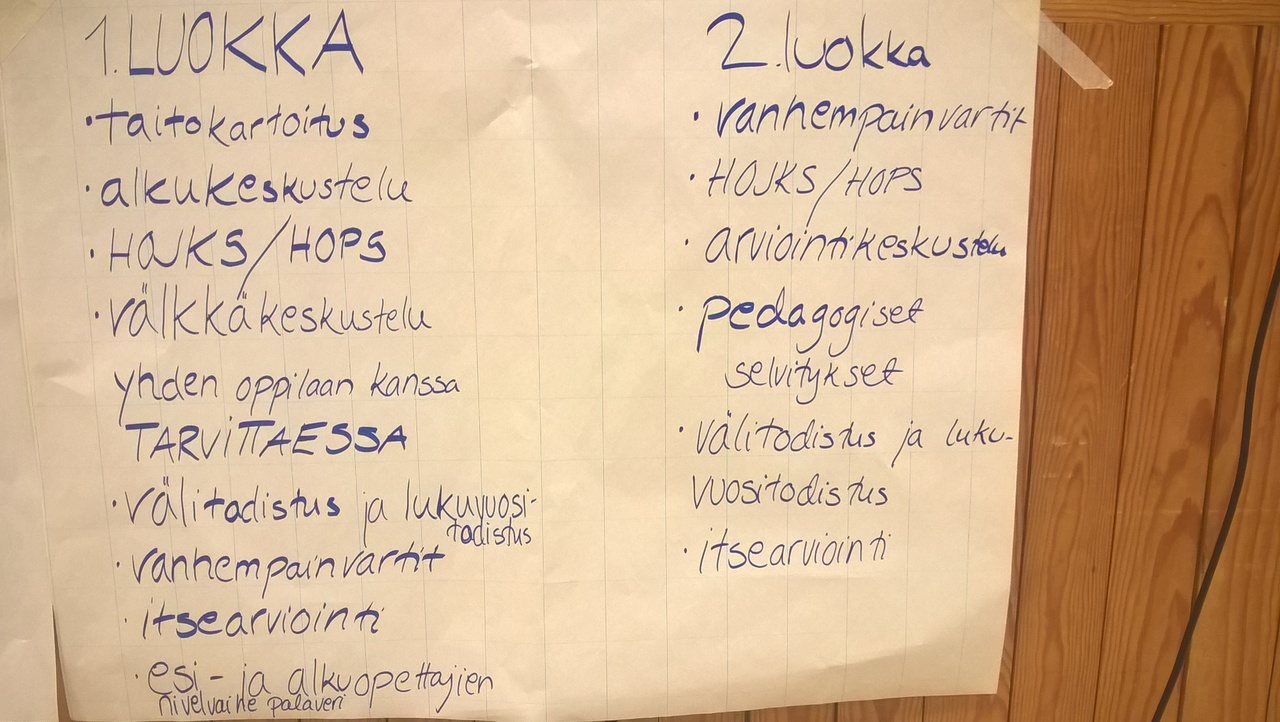 1. LUOKKA
• taitokartoitus
• alkukeskustelu
• HOJKS/HOPS
• välkkäkeskustelu
yhden oppilaan kanssa
TARVITTAESSA
• välitodistus ja lukuvuosi-
todistus
• vanhempainvartit
• itsearviointi
• esi- ja alkuopettajien
nivelvaihe palaveri
2. luokka
• vanhempainvartit
• HOJKS/HOPS
• arviointikeskustelu
• pedagogiset
selvitykset
• välitodistus ja luku-
vuositodistus
• itsearviointi